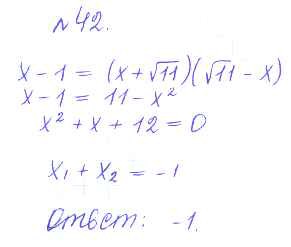 №42.
x - 1 = (x + √11)(√11 - x)
x - 1 = 11 - x²
x² + x + 12 = 0
x₁ + x₂ = -1
Ответ: -1.